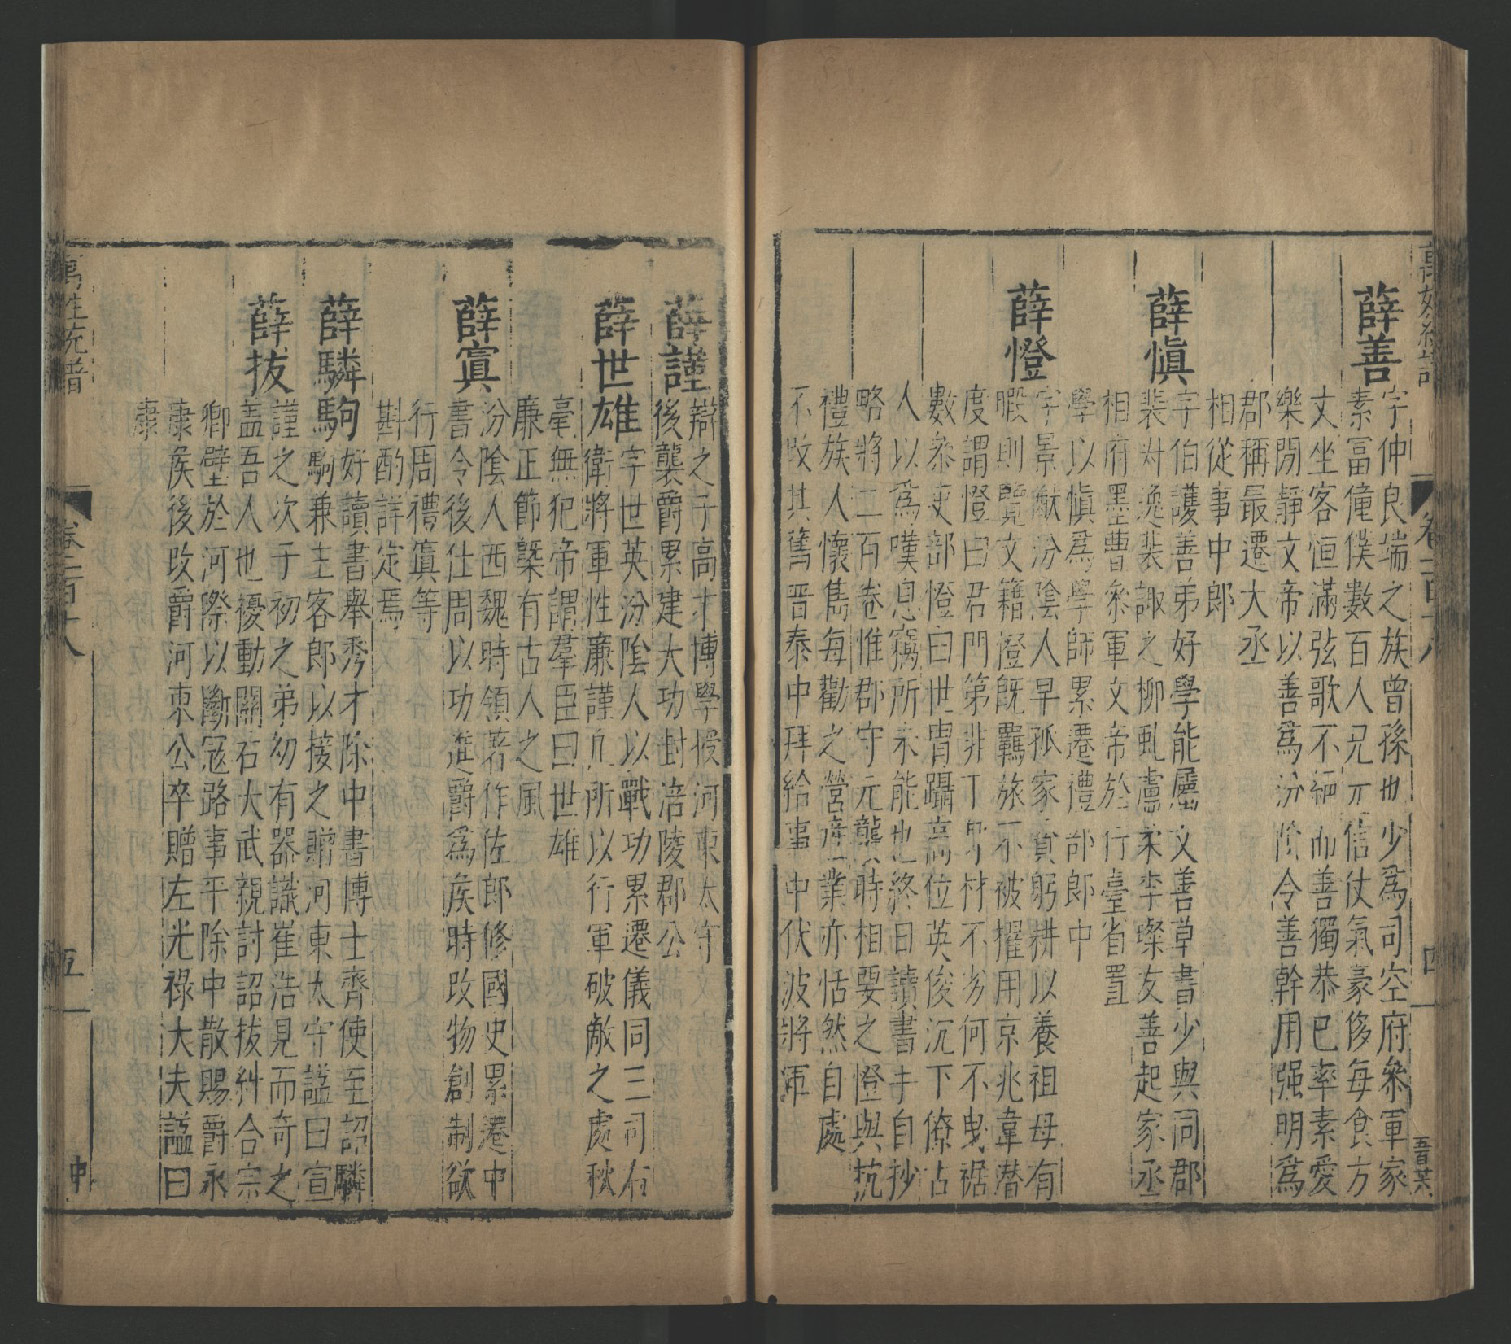 萬姓統譜
卷一百十八
四
薛善
字仲良端之族曾孫也少爲司空府叅軍家
素富僮僕數百人兄元信仗氣豪侈每食方
丈坐客恒滿弦歌不絕而善獨恭巳率素愛
樂閒靜文帝以善爲汾陰令善幹用强明爲
郡稱最遷大丞
相從事中郎
薛慎
字伯護善弟好學能屬文善草書少與同郡
裴叔逸裴諏之柳虬盧柔李璨友善起家丞
相府墨曹叅軍文帝於行臺省置
學以慎爲學師累遷禮部郎中
薛憕
字景猷汾陰人早孤家貧躬耕以養祖母有
暇則覽文籍憕旣羈旅不被擢用京兆韋潛
度謂憕曰君門第非下身材不劣何不曳裾
數叅吏部憕曰世冑躡高位英俊沉下僚古
人以爲嘆息竊所未能也終日讀書手自抄
略將二百卷惟郡守元襲時相要之憕與抗
禮族人懷儁每勸之營産業亦恬然自處
不改其篤晋泰中拜給事中伏波將軍
薛謹
辯之子高才博學授河東太守
後襲爵累建大功封涪陵郡公
薛世雄
字世英汾陰人以戰功累遷儀同三司右
衛將軍性廉謹凡所以行軍破敵之處秋
毫無犯帝謂羣臣曰世雄
廉正節槩有古人之風
薛寘
汾陰人西魏時領著作佐郎修國史累遷中
書令後仕周以功進爵爲侯時改物創制欲
行周禮寘等
斟酌詳定焉
薛驎駒
好讀書舉秀才除中書博士齊使至詔驎
駒兼主客郎以接之贈河東太守謚曰宣
薛拔
謹之次于初之弟幼有器識崔浩見而奇之
盖吾人也擾動關右大武親討詔拔糾合宗
卿壁於河際以斷寇路事平除中散賜爵永
康侯後改爵河東公卒贈左光祿大夫謚曰
康
萬姓統譜
卷一百十八
五